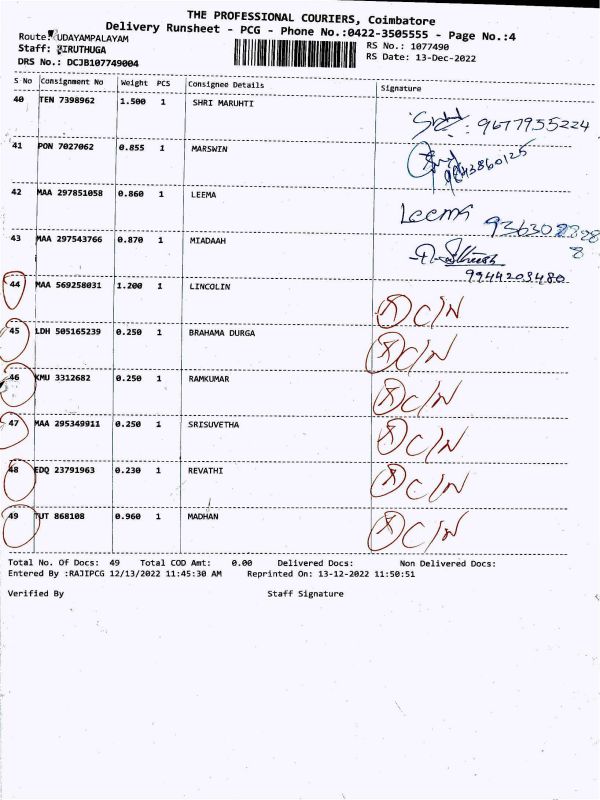 THE PROFESSIONAL COURIERS, Coimbatore
Delivery Runsheet - PCG - Phone No.:0422-3505555 - Page No.:4
Route: UDAYAMPALAYAM
RS No.: 1077490
Staff: KIRUTHUGA
RS Date: 13-Dec-2022
DRS No.: DCJB107749004
S No Consignment No Weight PCS Consignee Details Signature
40 TEN 7398962 1.500 1 SHRI MARUHTI 9677955224
41 PON 7027062 0.855 1 MARSWIN
42 MAA 297851058 0.860 1 LEEMA Leema
43 MAA 297543766 0.870 1 MIADAAH 9944203480
44 MAA 569258031 1.200 1 LINCOLIN C/N
45 LDH 505165239 0.250 1 BRAHAMA DURGA C/N
46 KMU 3312682 0.250 1 RAMKUMAR C/N
47 MAA 295349911 0.250 1 SRISUVETHA C/N
48 EDQ 23791963 0.230 1 REVATHI C/N
49 TUT 868108 0.960 1 MADHAN C/N
Total No. Of Docs: 49 Total COD Amt: 0.00 Delivered Docs: Non Delivered Docs:
Entered By :RAJIPCG 12/13/2022 11:45:30 AM Reprinted On: 13-12-2022 11:50:51
Verified By Staff Signature